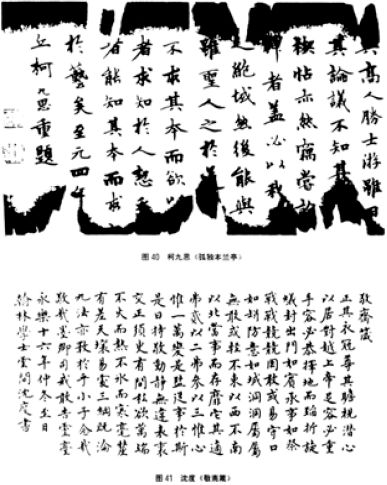 與高人勝士游雖日
其論議不知其
禊帖亦然窩嘗
禪者蓋必以我
絕域然後能與
雖聖人之於
不求其本而欲以
者求知於人恕
有能知其本而求
於藝矣至元四年
丘柯九思重題
图 40 柯九思《孤独本兰亭》
敬齋箴
正其衣冠尊其瞻視潛心
以居對越上帝足容必重
手容必恭擇地而蹈折旋
蟻封出門如賓承事如祭
戰戰兢兢罔敢或易守口
如缾防意如城洞洞屬屬
無敢或輕不東以西不南
以北當事而存靡它其適
弗貳以二弗參以三惟心
惟一萬變是監從事於斯
是曰持敬動靜無違表裏
交正須臾有間私欲萬端
不火而熱不氷而寒毫釐
有差天壤易處三綱既淪
九法亦斁於乎小子念哉
敬哉墨卿司戒敢告靈臺
永樂十六年仲冬至日
翰林學士雲間沈度書
图 41 沈度《敬斋箴》